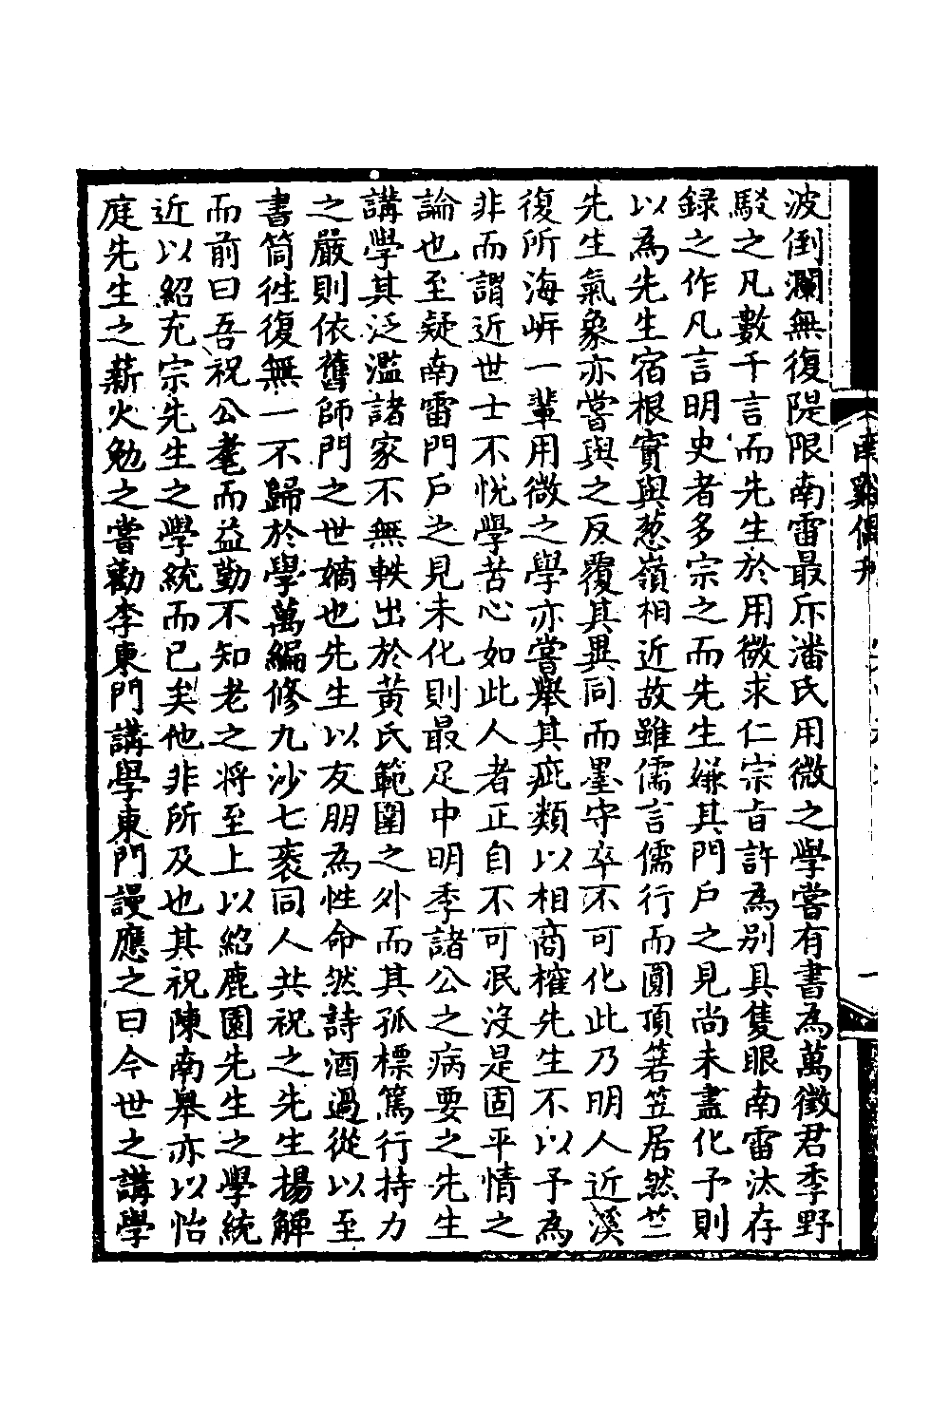 波倒瀾無復隄限南雷最斥潘氏用微之學嘗有書為萬徵君季野
駁之凡數千言而先生於用微求仁宗旨許為別具隻眼南雷汰存
録之作凡言明史者多宗之而先生嫌其門戶之見尚未盡化予則
以為先生宿根實與葱嶺相近故雖儒言儒行而圓頂箬笠居然竺
先生氣象亦嘗與之反覆其異同而墨守卒不可化此乃明人近溪
復所海岍一輩用微之學亦嘗舉其疵類以相商榷先生不以予為
非而謂近世士不悅學苦心如此人者正自不可泯沒是固平情之
論也至疑南雷門戶之見未化則最足中明季諸公之病要之先生
講學其泛濫諸家不無軼出於黃氏範圍之外而其孤標篤行持力
之嚴則依舊師門之世嫡也先生以友朋為性命然詩酒過從以至
書筒徃復無一不歸於學萬編修九沙七袠同人共祝之先生揚觶
而前曰吾祝公耄而益勤不知老之将至上以紹鹿園先生之學統
近以紹充宗先生之學統而已矣他非所及也其祝陳南臯亦以怡
庭先生之薪火勉之嘗勸李東門講學東門謾應之曰今世之講學